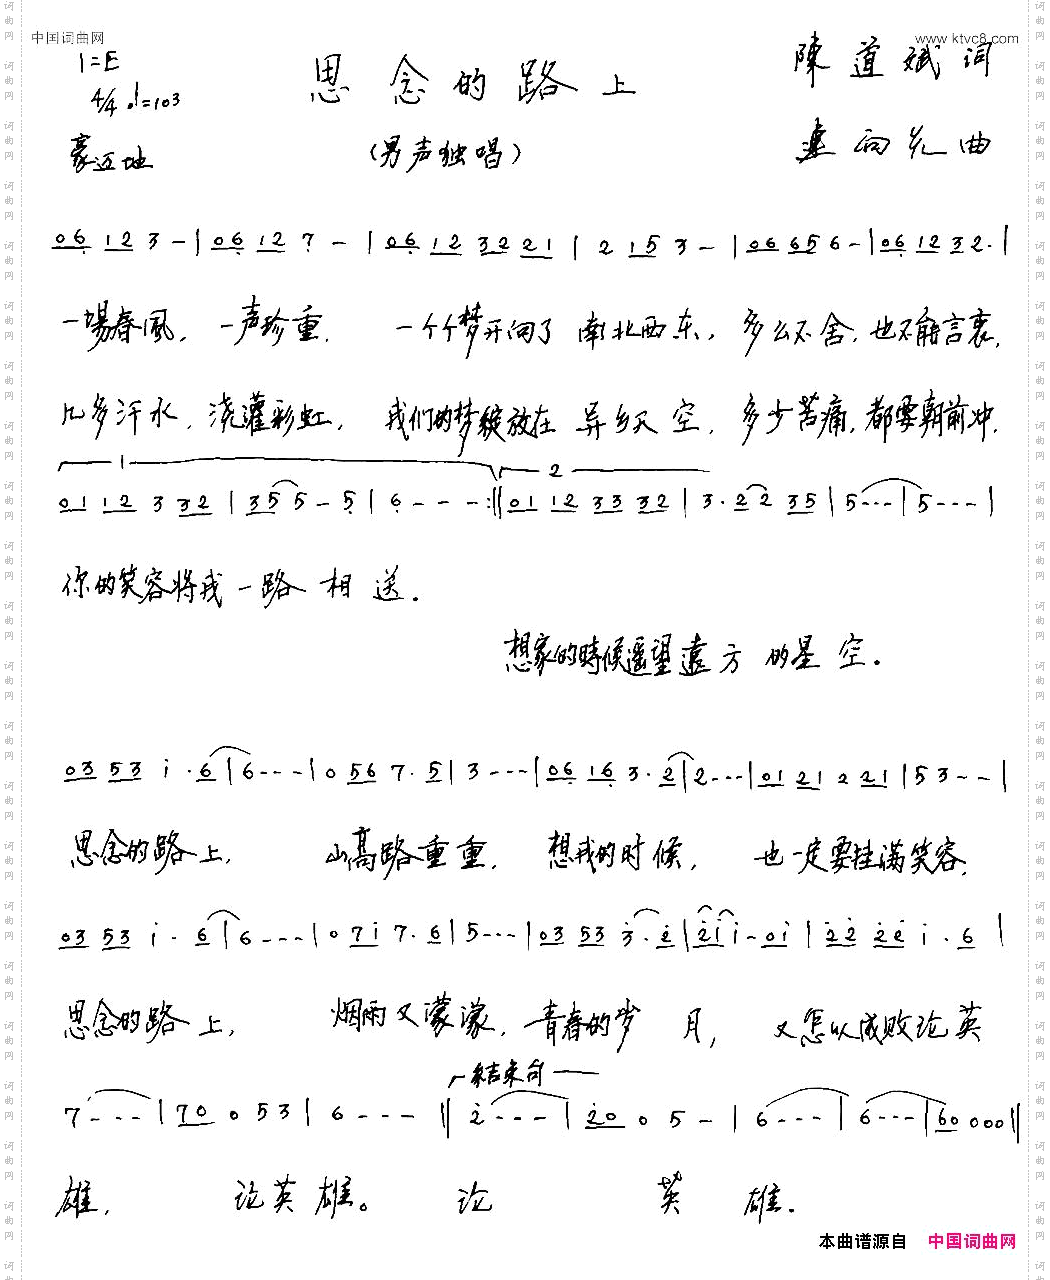 中国词曲网 www.ktvc8.com
1=E 思念的路上 陳道斌 词
4/4 ♩=103
豪迈地 (男声独唱) 孟向光 曲
06 12 3 - | 06 12 7 - | 06 12 32 21 | 2 15 3 - | 06 656 - | 06 12 32. |
一場春風，一声珍重， 一个个梦开向了 南北西东，多么不舍，也不能言衷，
几多汗水，浇灌彩虹， 我们的梦绽放在 异乡天空，多少苦痛，都要朝前冲，
1 2
01 12 3 32 | 35 5 - 5 | 6 - - - :|| 01 12 33 32 | 3. 22 35 | 5 - - - | 5 - - - |
你的笑容将我一路 相送．
想家的時候遥望遠方 的星空．
03 53 i . 6 | 6 - - - | 0 56 7. 5 | 3 - - - | 06 16 3. 2 | 2 - - - | 01 21 2 21 | 5 3 - - |
思念的路上， 山高路重重， 想我的时候， 也一定要挂满笑容，
03 53 i . 6 | 6 - - - | 0 7i 7. 6 | 5 - - - | 03 53 3. 2 | 2i i - 0i | 22 22 i . 6 |
思念的路上， 烟雨又濛濛，青春的岁 月， 又怎以成败论英
结束句
7 - - - | 70 0 53 | 6 - - - || 2 - - - | 20 0 5 - | 6 - - - | 6 - - - | 60 000 ||
雄， 论英雄。 论 英 雄．
本曲谱源自 中国词曲网
词曲网